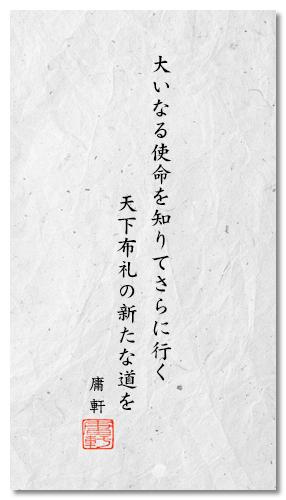 大いなる使命を知りてさらに行く
天下布礼の新たな道を
庸軒
庸軒